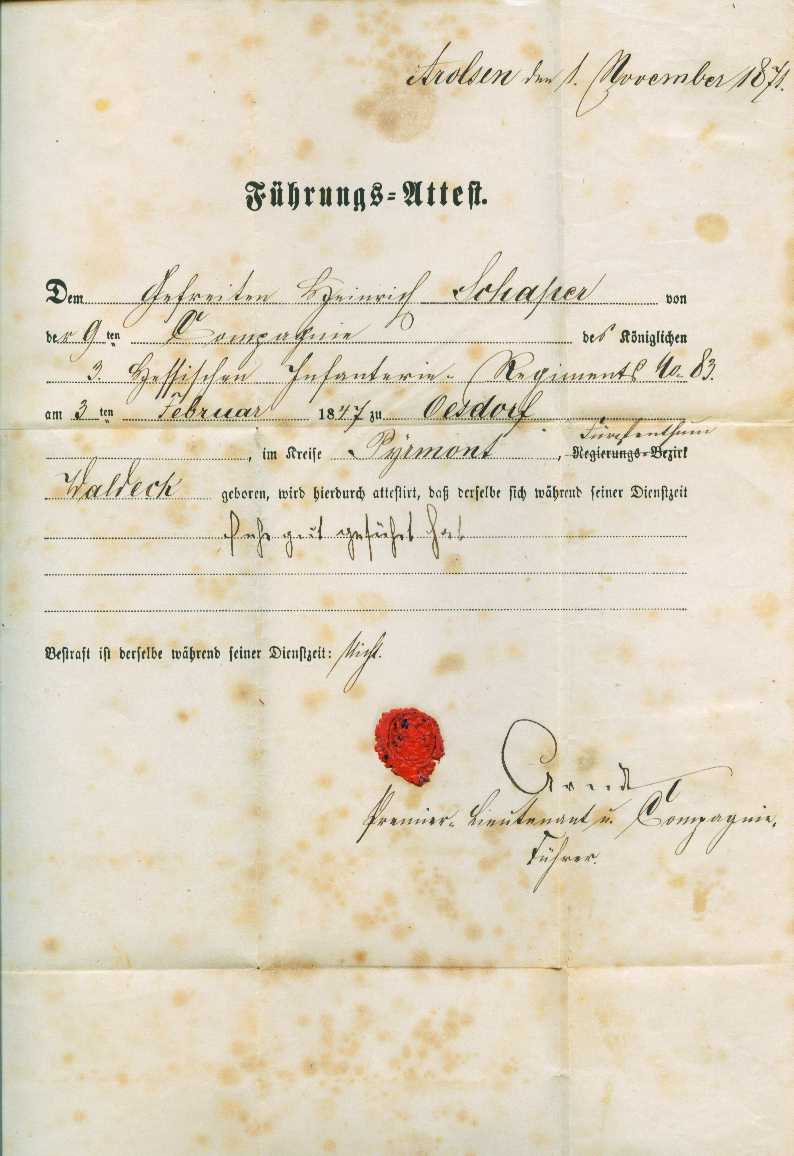 Arolsen den 1. November 1871.
Führungs-Attest.
Dem Gefreiten Heinrich Schaper von
der 9 ten Compagnie des Königlichen
3. Hessischen Infanterie-Regiments No. 83.
am 3 ten Februar 1847 zu Oesdorf
Fürstenthum
, im Kreise Pyrmont, Regierungs-Bezirk
Waldeck geboren, wird hierdurch attestirt, daß derselbe sich während seiner Dienstzeit
sehr gut geführt hat
Bestraft ist derselbe während seiner Dienstzeit: Nicht.
Premier-Lieutenant u. Compagnie-
Führer.